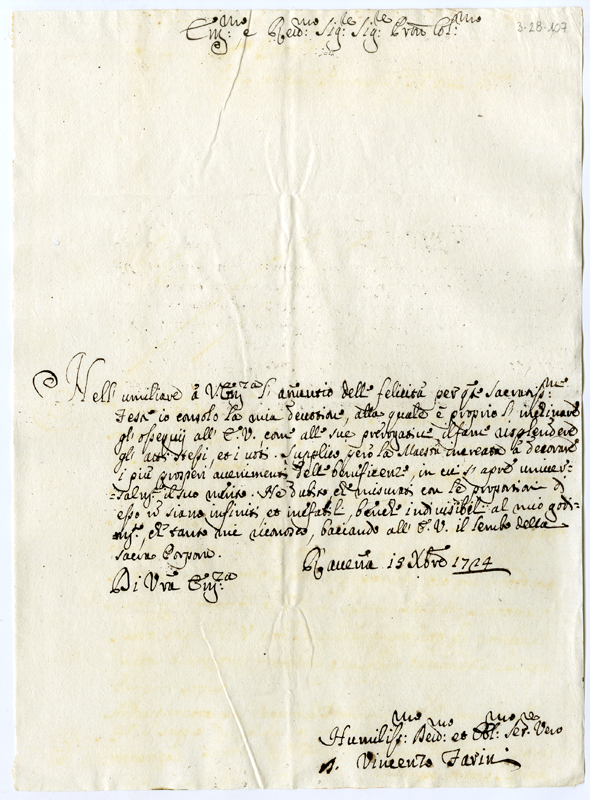 3-28-107
Em:mo e Reud:mo Sig:re Sig:re Pron Col:mo
Nell' umiliare à V. Em:za l' annuntio delle felicità per q:te Sacratiss:me
Feste io consolo la mia devotione, alla quale è proprio l' inclinare
gli ossequij all' E.V. come alle sue prerogative il fare risplendere
gli atti stessi, et i voti. Supplico però la Maestà increata à decorare
i più prosperi avenimenti delle beneficenze, in cui si apre univer=
salm:te il suo merito. Ne dubito, che misurati con le proportioni di
esso nõ siano infiniti et inefabili, benche indivisibili al mio godi=
m:to, che tanto mi ricordo, baciando all' E.V. il lembo della
Sacra Porpora.
Ravena 15 Xbre 1724
Di Vrã Em:za
Humiliss:mo Deud:mo et Obl:mo Ser:re Vero
Vincenzo Farini